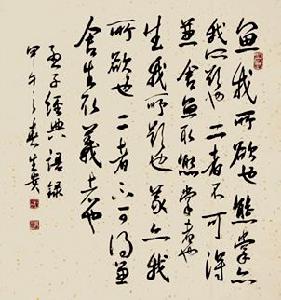 魚我所欲也熊掌亦
我所欲也二者不可得
兼舍魚取熊掌者也
生我所欲也義亦我
所欲也二者不可得兼
舍生取義者也
孟子經典語錄
甲午之春